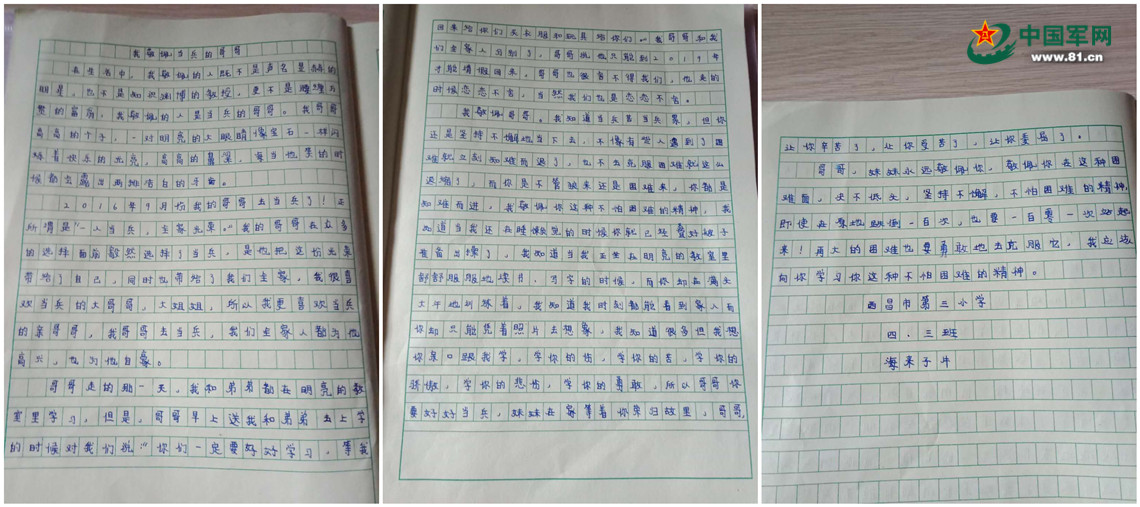 我敬佩当兵的哥哥
在生活中，我敬佩的人既不是声名显赫的
明星，也不是知识渊博的教授，更不是腰缠万
贯的富翁，我敬佩的人是当兵的哥哥。我哥哥
高高的个子，一对明亮的大眼睛像宝石一样闪
烁着快乐的光亮，高高的鼻梁，每当他笑的时
候都会露出两排洁白的牙齿。
2016年9月份我的哥哥去当兵了！正
所谓是“一人当兵，全家光荣。”我的哥哥在众多
的选择面前毅然选择了当兵，是他把这份光荣
带给了自己，同时也带给了我们全家，我很喜
欢当兵的大哥哥，大姐姐，所以我更喜欢当兵
的亲哥哥，我哥哥去当兵，我们全家人都为他
高兴，也为他自豪。
哥哥走的那一天，我和弟弟都在明亮的教
室里学习，但是，哥哥早上送我和弟弟去上学
的时候对我们说“你们一定要好好学习，等我
回来给你们买衣服和玩具给你们。”我哥哥和我
们全家人分别了，哥哥说他只能到2019年
才能请假回来，哥哥也很舍不得我们，他走的
时候恋恋不舍，当然我们也是恋恋不舍。
我敬佩哥哥。我知道当兵苦当兵累，但你
还是坚持不懈地当下去，不像有些人遇到了困
难就立刻知难而退了，也不去克服困难就这么
退缩了，而你是不管酸来还是困难来，你都是
知难而进，我敬佩你这种不怕困难的精神，我
知道当我还在睡懒觉的时候你就已经叠好被子
准备出操了，我知道当我正坐在明亮的教室里
舒舒服服地读书，写字的时候，而你却在满头
大汗地训练着，我知道我时刻都能看到家人而
你却只能凭着照片去想象，我知道很多但我想
你亲口跟我学，学你的伤，学你的苦，学你的
骄傲，学你的悲伤，学你的勇敢，所以哥哥你
要好好当兵，妹妹在家等着你荣归故里，哥哥，
让你辛苦了，让你受苦了，让你委屈了。
哥哥，妹妹永远敬佩你，敬佩你在这种困
难面，决不低头，坚持不懈，不怕困难的精神，
即使在原地跌倒一百次，也要一百零一次站起
来！再大的困难也要勇敢地去克服它，我应该
向你学习你这种不怕困难的精神。
西昌市第三小学
四．三班
海来子牛
中国军网
www.81.cn